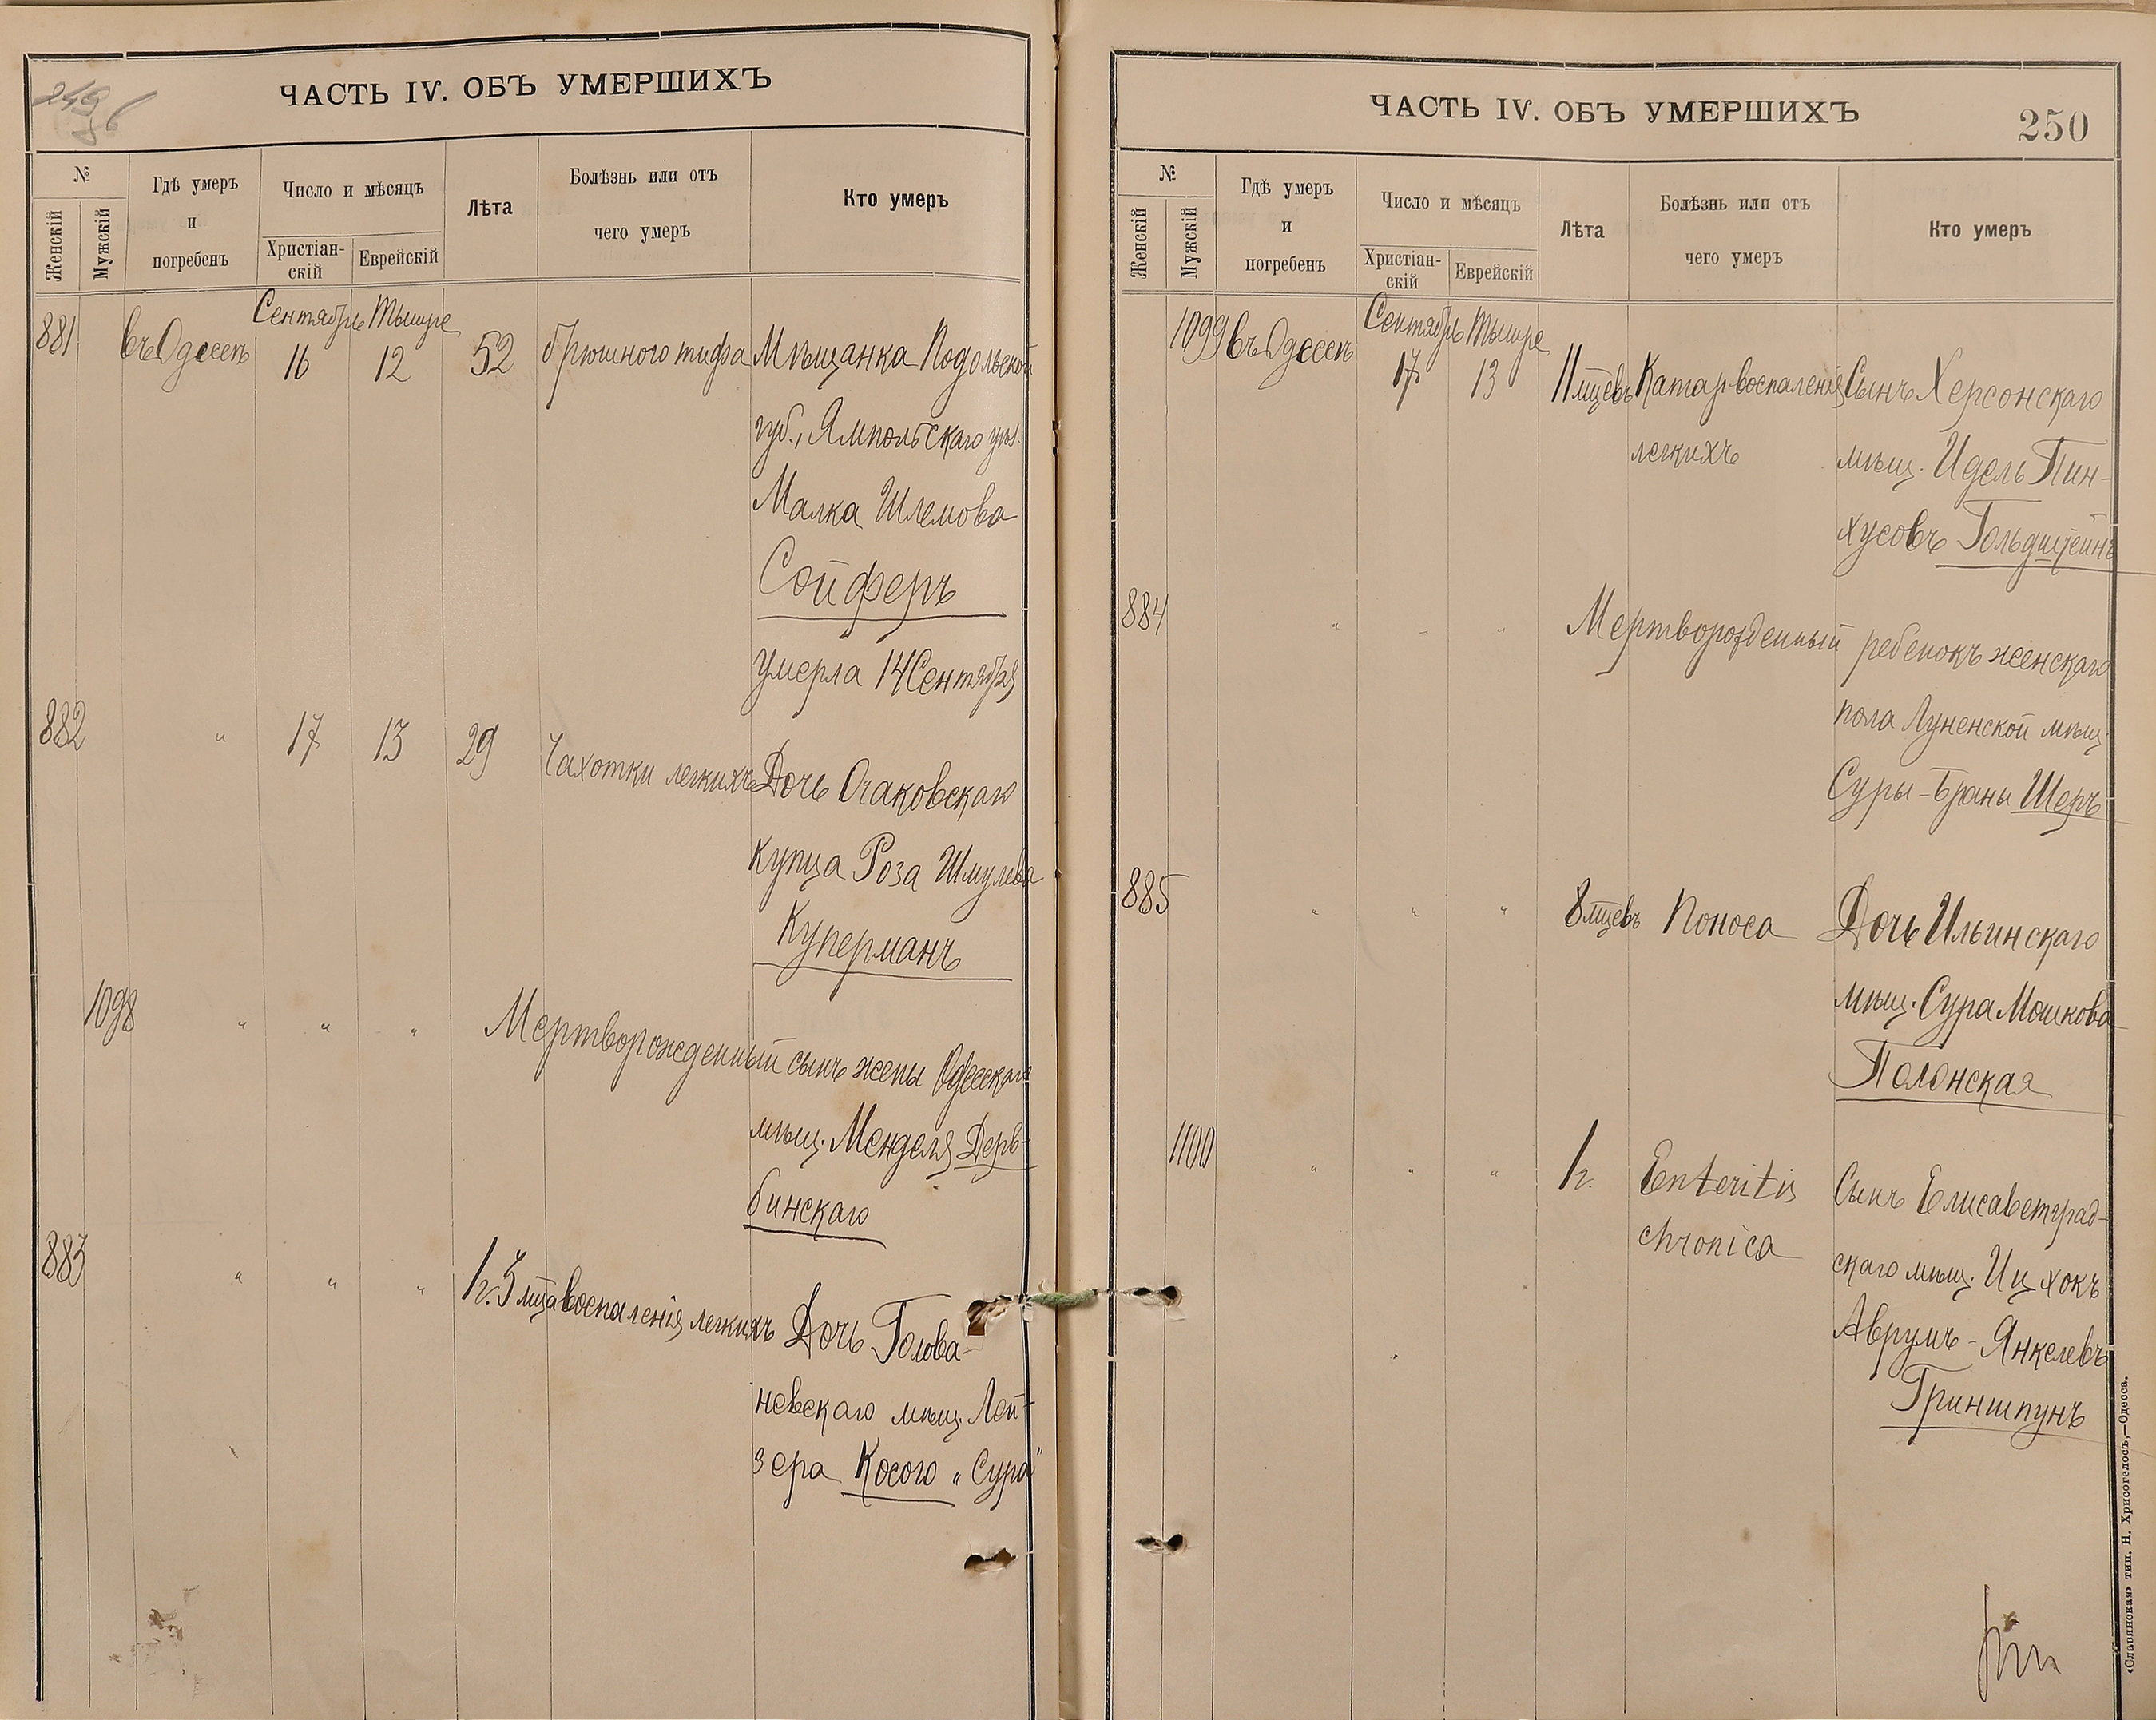 ЧАСТЬ IV. ОБЪ УМЕРШИХЪ
№
Женскій
Мужскій
Гдѣ умеръ
и
погребенъ
Число и мѣсяцъ
Христіан-
скій
Еврейскій
Лѣта
Болѣзнь или отъ
чего умеръ
Кто умеръ
Сентябрь Тышре
881 въ Одессѣ 16 12 52 брюшного тифа Мѣщанка Подольской
губ., Ямпольскаго уѣз.
Малка Шлемова
Сойферъ
умерла 14 Сентября
882 " 17 13 29 Чахотки легкихъ Дочь Очаковскаго
купца Роза Шмулева
Куперманъ
1098 " " " Мертворожденный сынъ жены Одесскаго
мѣщ. Менделя Дерв-
бинскаго
883 " " " 1 г. 5 мца воспаленія легкихъ Дочь Голова-
невскаго мѣщ. Лей-
зера Косого „Сура"
ЧАСТЬ IV. ОБЪ УМЕРШИХЪ
250
№
Женскій
Мужскій
Гдѣ умеръ
и
погребенъ
Число и мѣсяцъ
Христіан-
скій
Еврейскій
Лѣта
Болѣзнь или отъ
чего умеръ
Кто умеръ
Сентябрь Тышре
1099 въ Одессѣ 17 13 11 мцевъ Катар. воспаленія Сынъ Херсонскаго
легкихъ мѣщ. Идель Пин-
хусовъ Гольдштейнъ
884 " " " Мертворожденный ребенокъ женскаго
пола Луненской мѣщ.
Суры-Браны Шеръ
885 " " " 8 мцевъ Поноса Дочь Ильинскаго
мѣщ. Сура Мошкова
Полонская
1100 " " " 1 г. Enteritis Сынъ Елисаветград-
chronica скаго мѣщ. Ицхокъ
Аврумъ-Янкелевъ
Гриншпунъ
«Славянская» тип. Н. Хрисогелосъ,—Одесса.